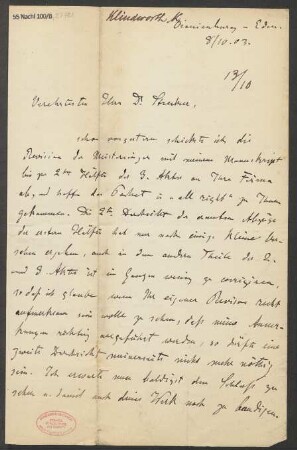 55 Nachl 100/B
Klindworth, K.
Oranienburg – Eden.
8/10. 03.
13/10
Verehrtester Herr Dr. Strecker,
schon vorgestern schickte ich die
Revision der Meistersinger mit meinem Manuskript
bis zur 2ten Hälfte des 3. Aktes an Ihre Firma
ab, und hoffe das Packet is „all right" zu Ihnen
gekommen. Die 2te Durchsicht der neuen Abzüge
der ersten Hälfte hat nur noch einige kleine Ver-
sehen ergeben, auch in dem andern Theile des 2.
und 3. Aktes ist im Ganzen wenig zu corrigieren,
so daß ich glaube, wenn Ihr eigener Revisor recht
aufmerksam sein wolle zu sehen, daß meine Anmer-
kungen richtig ausgeführt werden, so dürfte eine
zweite Durchsicht meinerseits nicht mehr nöthig
sein. Ich erwarte nun baldigst den Schluß zu
sehen u. damit auch dieses Werk nach zu